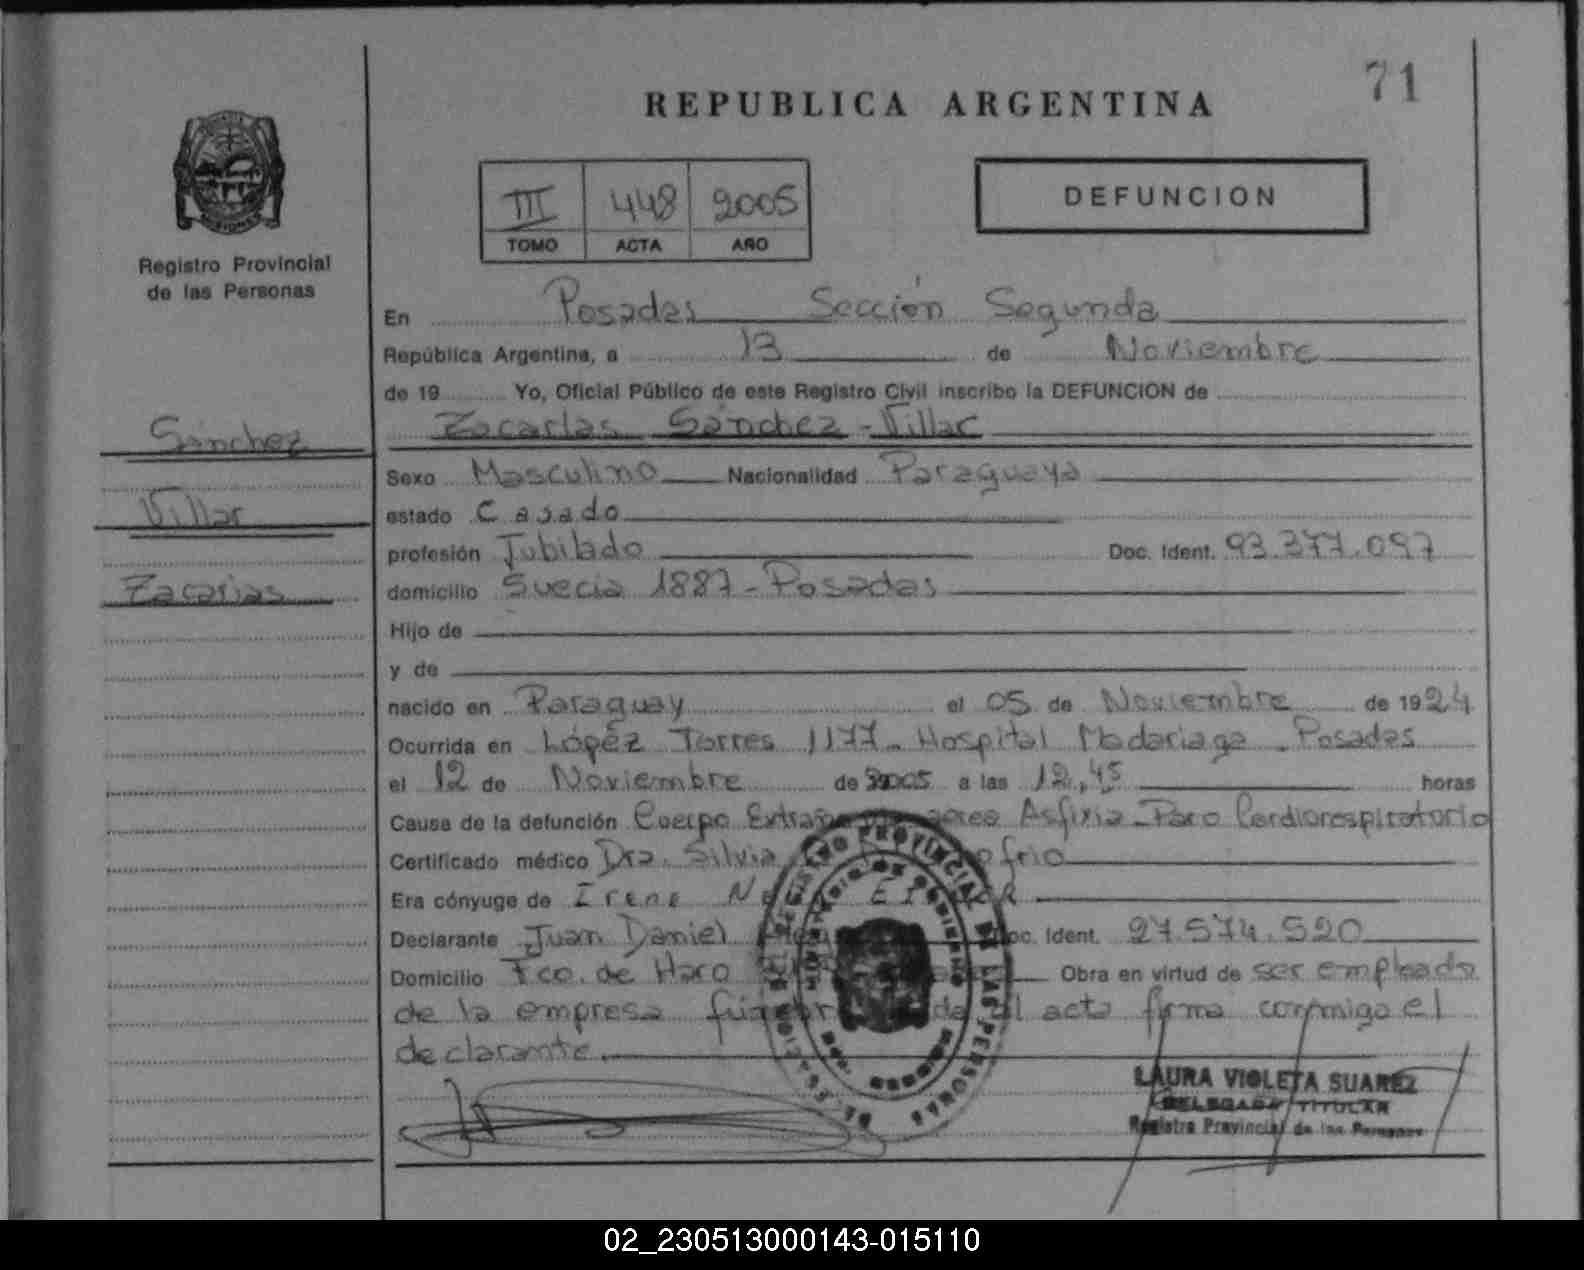 71
REPUBLICA ARGENTINA
III 448 2005
TOMO ACTA AÑO
DEFUNCION
Registro Provincial
de las Personas
En Posadas Sección Segunda
República Argentina, a 13 de Noviembre
de 19 Yo, Oficial Público de este Registro Civil inscribo la DEFUNCION de
Sánchez
Zacarías Sánchez - Villar
Sexo Masculino Nacionalidad Paraguaya
Villar
estado Casado
profesión Jubilado Doc. Ident. 93.377.097
Zacarias
domicilio Suecia 1887 - Posadas
Hijo de
y de
nacido en Paraguay el 05 de Noviembre de 1924
Ocurrida en López Torres 1177 - Hospital Madariaga - Posadas
el 12 de Noviembre de 2005 a las 12,45 horas
Causa de la defunción Cuerpo Extraño aerea Asfixia - Paro Cardiorespiratorio
Certificado médico Dra. Silvia
Era cónyuge de Irene
Declarante Juan Daniel Doc. Ident. 27.574.520
Domicilio Fco. de Haro Obra en virtud de ser empleado
de la empresa el acta firma conmigo el
declarante.
REGISTRO PROVINCIAL DE LAS PERSONAS
LAURA VIOLETA SUAREZ
DELEGADA TITULAR
Registro Provincial de las Personas
02_230513000143-015110